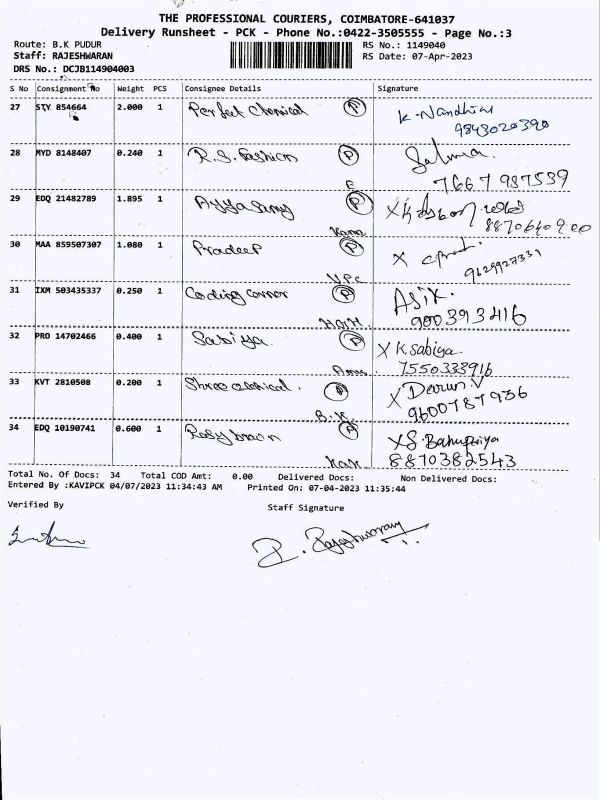 THE PROFESSIONAL COURIERS, COIMBATORE-641037
Delivery Runsheet - PCK - Phone No.:0422-3505555 - Page No.:3
Route: B.K PUDUR RS No.: 1149040
Staff: RAJESHWARAN RS Date: 07-Apr-2023
DRS No.: DCJB114904003
S No Consignment No Weight PCS Consignee Details Signature
27 STY 854664 2.000 1 Perfect chemical P K. Nandhini
9843020390
28 MYD 8148407 0.240 1 R.S. Fashion P Salma.
E 7667987539
29 EDQ 21482789 1.895 1 P X
30 MAA 859507307 1.080 1 Pradeep P X
9629927331
31 IXM 503435337 0.250 1 Coding corner P Asik.
900393416
32 PRO 14702466 0.400 1 Sabiya P X K Sabiya
7550333916
33 KVT 2810508 0.200 1 Shree chemical. P X
B.K 9600787936
34 EDQ 10190741 0.600 1 P X S. Banupriya
8870382543
Total No. Of Docs: 34 Total COD Amt: 0.00 Delivered Docs: Non Delivered Docs:
Entered By :KAVIPCK 04/07/2023 11:34:43 AM Printed On: 07-04-2023 11:35:44
Verified By Staff Signature